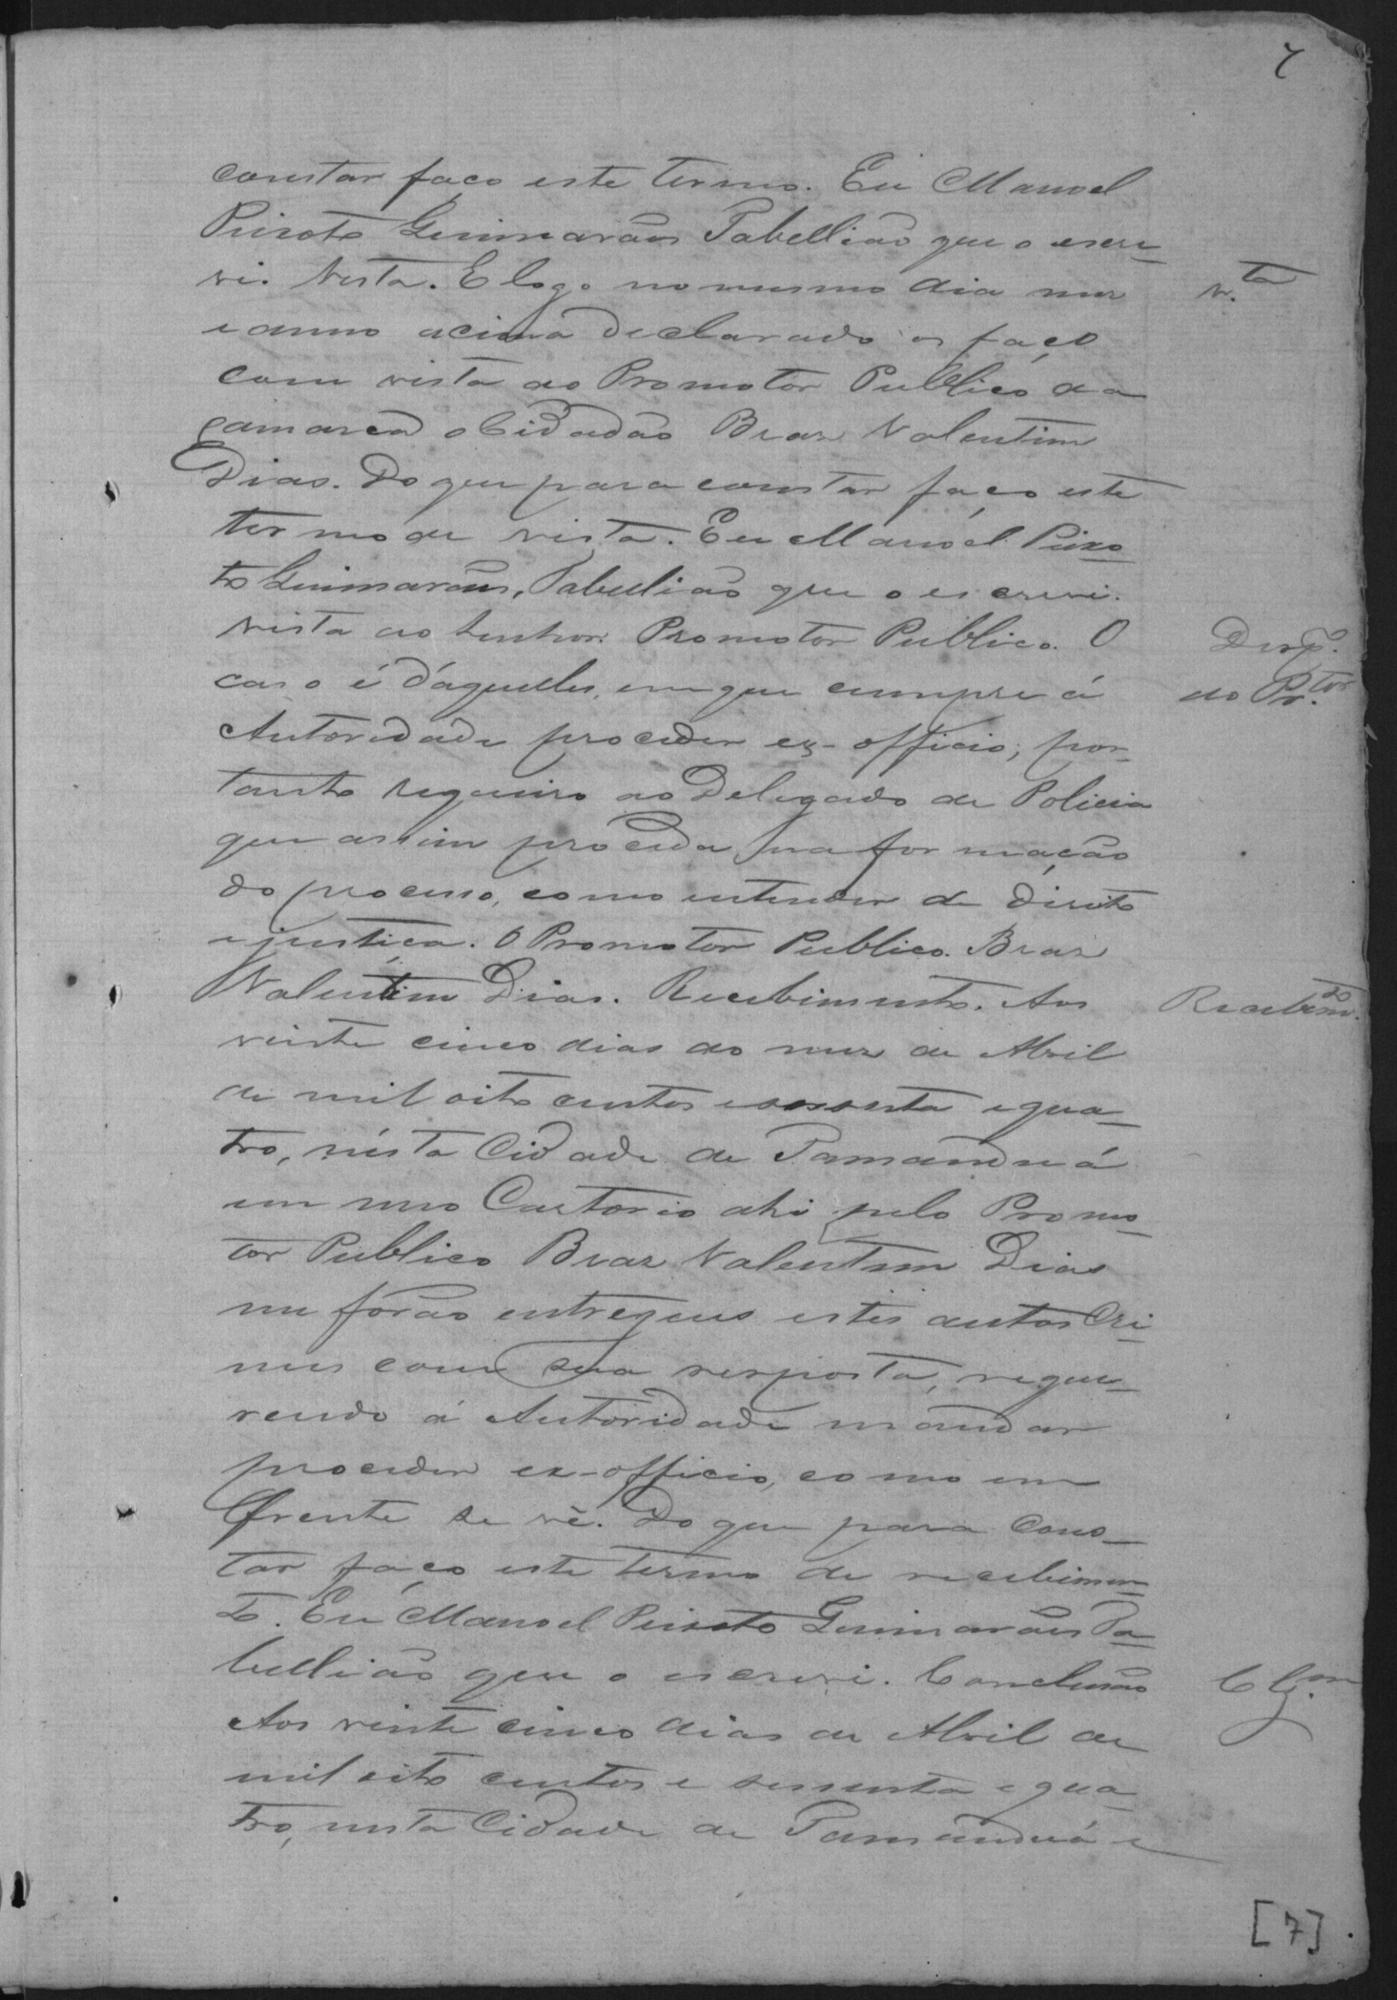 7
constar faço este termo. Eu Manoel
Peixoto Guimarães Tabellião que o escre-
vi. Vista. E logo no mesmo dia mez
V.ta
e anno acima declarado os faço
com vista ao Promotor Publico da
Camarca o Cidadão Braz Valentim
Dias. Do que para constar faço este
termo de vista. Eu Manoel Peixo-
to Guimarães, Tabellião que o escrevi.
Vista ao Senhor Promotor Publico. O
Desp.
caso é d'aquelles, em que cumpre á
do Pr.tor
Autoridade proceder ex-officio; por-
tanto requeiro ao Delegado de Policia
que assim proceda na formação
do processo, como entender de direito
e justiça. O Promotor Publico. Braz
Valentim Dias. Recebimento. Aos
Recebim.to
vinte cinco dias do mez de Abril
de mil oito centos e sessenta e qua-
tro, nésta Cidade de Tamanduá
em meo Cartorio ahi pelo Promo-
tor Publico Braz Valentim Dias
me forão entregues estes autos Cri-
mes com sua resposta, reque-
rendo á Autoridade mandar
proceder ex-officio, como em
frente se vê. Do que para Cons-
tar faço este termo de recebimen-
to. Eu Manoel Peixoto Guimarães Ta-
bellião que o escrevi. Conclusão
Clz.m
Aos vinte cinco dias de Abril de
mil oito centos e sessenta e qua-
tro, nesta Cidade de Tamanduá e
[7]